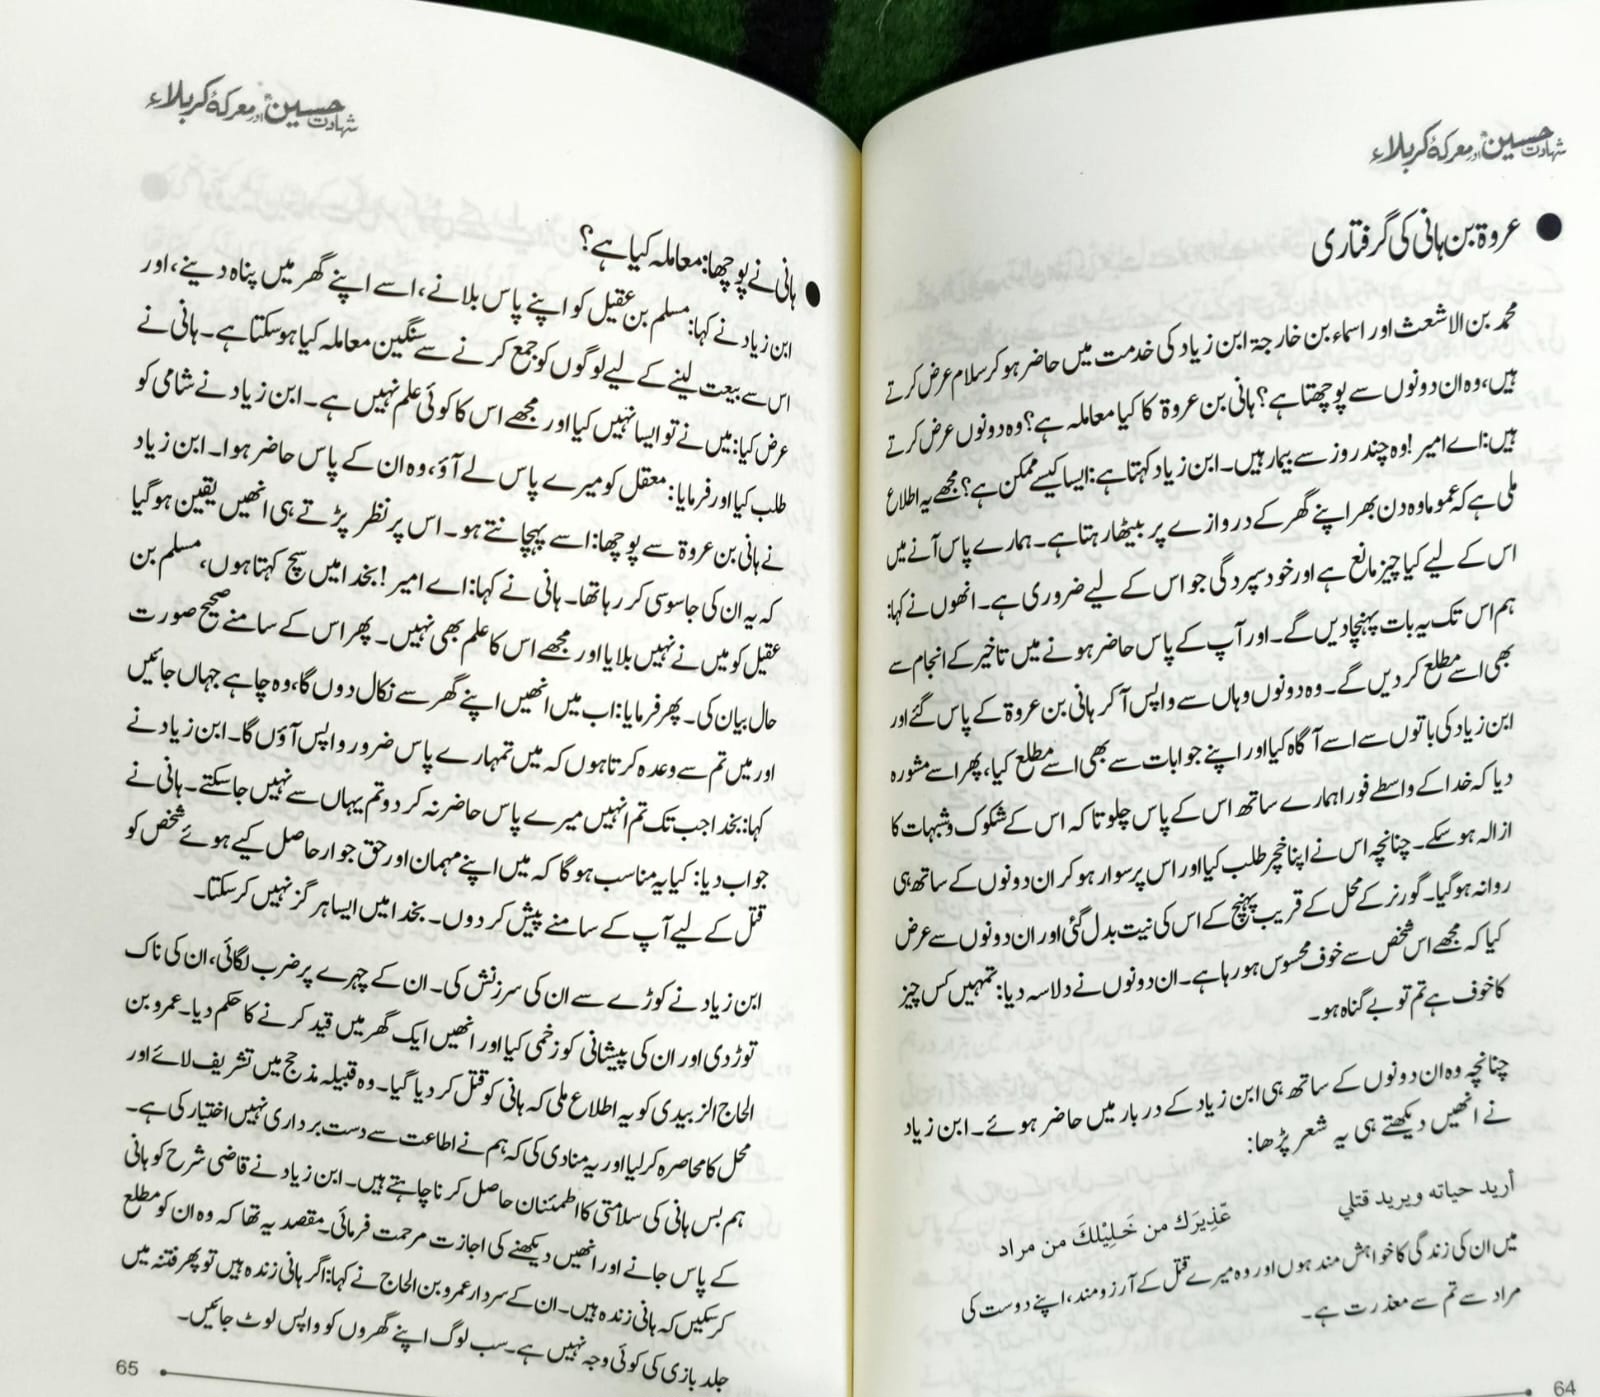 شہادت حسینؓ اور معرکۂ کربلاء
عروۃ بن ہانی کی گرفتاری
محمد بن الاشعث اور اسماء بن خارجۃ ابن زیاد کی خدمت میں حاضر ہو کر سلام عرض کرتے
ہیں، وہ ان دونوں سے پوچھتا ہے؟ ہانی بن عروۃ کا کیا معاملہ ہے؟ وہ دونوں عرض کرتے
ہیں: اے امیر! وہ چند روز سے بیمار ہیں۔ ابن زیاد کہتا ہے: ایسا کیسے ممکن ہے؟ مجھے یہ اطلاع
ملی ہے کہ عموما وہ دن بھر اپنے گھر کے دروازے پر بیٹھا رہتا ہے۔ ہمارے پاس آنے میں
اس کے لیے کیا چیز مانع ہے اور خود سپردگی جو اس کے لیے ضروری ہے۔ انھوں نے کہا:
ہم اس تک یہ بات پہنچا دیں گے۔ اور آپ کے پاس حاضر ہونے میں تاخیر کے انجام سے
بھی اسے مطلع کر دیں گے۔ وہ دونوں وہاں سے واپس آ کر ہانی بن عروۃ کے پاس گئے اور
ابن زیاد کی باتوں سے اسے آگاہ کیا اور اپنے جوابات سے بھی اسے مطلع کیا، پھر اسے مشورہ
دیا کہ خدا کے واسطے فورا ہمارے ساتھ اس کے پاس چلو تا کہ اس کے شکوک و شبہات کا
ازالہ ہو سکے۔ چنانچہ اس نے اپنا خچر طلب کیا اور اس پر سوار ہو کر ان دونوں کے ساتھ ہی
روانہ ہو گیا۔ گورنر کے محل کے قریب پہنچ کے اس کی نیت بدل گئی اور ان دونوں سے عرض
کیا کہ مجھے اس شخص سے خوف محسوس ہو رہا ہے۔ ان دونوں نے دلاسہ دیا: تمہیں کس چیز
کا خوف ہے تم تو بے گناہ ہو۔
چنانچہ وہ ان دونوں کے ساتھ ہی ابن زیاد کے دربار میں حاضر ہوئے۔ ابن زیاد
نے انھیں دیکھتے ہی یہ شعر پڑھا:
أريد حياته ويريد قتلي عَذِيرَك من خَلِيْلكَ من مراد
میں ان کی زندگی کا خواہش مند ہوں اور وہ میرے قتل کے آرزومند، اپنے دوست کی
مراد سے تم سے معذرت ہے۔
64
شہادت حسینؓ اور معرکۂ کربلاء
ہانی نے پوچھا: معاملہ کیا ہے؟
ابن زیاد نے کہا: مسلم بن عقیل کو اپنے پاس بلانے، اسے اپنے گھر میں پناہ دینے، اور
اس سے بیعت لینے کے لیے لوگوں کو جمع کرنے سے سنگین معاملہ کیا ہو سکتا ہے۔ ہانی نے
عرض کیا: میں نے تو ایسا نہیں کیا اور مجھے اس کا کوئی علم نہیں ہے۔ ابن زیاد نے شامی کو
طلب کیا اور فرمایا: معقل کو میرے پاس لے آؤ، وہ ان کے پاس حاضر ہوا۔ ابن زیاد
نے ہانی بن عروۃ سے پوچھا: اسے پہچانتے ہو۔ اس پر نظر پڑتے ہی انھیں یقین ہو گیا
کہ یہ ان کی جاسوسی کر رہا تھا۔ ہانی نے کہا: اے امیر! بخدا میں سچ کہتا ہوں، مسلم بن
عقیل کو میں نے نہیں بلایا اور مجھے اس کا علم بھی نہیں۔ پھر اس کے سامنے صحیح صورت
حال بیان کی۔ پھر فرمایا: اب میں انھیں اپنے گھر سے نکال دوں گا، وہ چاہے جہاں جائیں
اور میں تم سے وعدہ کرتا ہوں کہ میں تمہارے پاس ضرور واپس آؤں گا۔ ابن زیاد نے
کہا: بخدا جب تک تم انہیں میرے پاس حاضر نہ کر دو تم یہاں سے نہیں جا سکتے۔ ہانی نے
جواب دیا: کیا یہ مناسب ہو گا کہ میں اپنے مہمان اور حق جوار حاصل کیے ہوئے شخص کو
قتل کے لیے آپ کے سامنے پیش کر دوں۔ بخدا میں ایسا ہر گز نہیں کر سکتا۔
ابن زیاد نے کوڑے سے ان کی سرزنش کی۔ ان کے چہرے پر ضرب لگائی، ان کی ناک
توڑ دی اور ان کی پیشانی کو زخمی کیا اور انھیں ایک گھر میں قید کرنے کا حکم دیا۔ عمرو بن
الحاج الزبیدی کو یہ اطلاع ملی کہ ہانی کو قتل کر دیا گیا۔ وہ قبیلہ مذحج میں تشریف لائے اور
محل کا محاصرہ کر لیا اور یہ منادی کی کہ ہم نے اطاعت سے دست برداری نہیں اختیار کی ہے۔
ہم بس ہانی کی سلامتی کا اطمئنان حاصل کرنا چاہتے ہیں۔ ابن زیاد نے قاضی شرح کو ہانی
کے پاس جانے اور انھیں دیکھنے کی اجازت مرحمت فرمائی۔ مقصد یہ تھا کہ وہ ان کو مطلع
کر سکیں کہ ہانی زندہ ہیں۔ ان کے سردار عمرو بن الحاج نے کہا: اگر ہانی زندہ ہیں تو پھر فتنہ میں
جلد بازی کی کوئی وجہ نہیں ہے۔ سب لوگ اپنے گھروں کو واپس لوٹ جائیں۔
65